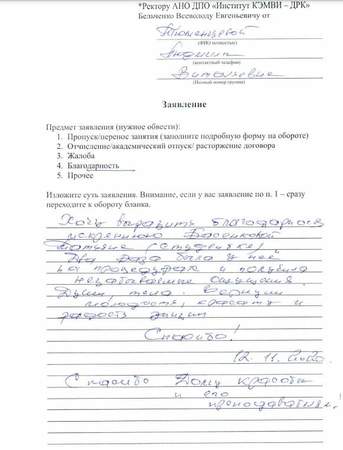 *Ректору АНО ДПО «Институт КЭМВИ – ДРК»
Бельченко Всеволоду Евгеньевичу от
Тюменцевой
(ФИО полностью)
(контактный телефон)
Витальевне
(Полный номер группы)
Заявление
Предмет заявления (нужное обвести):
1. Пропуск/перенос занятия (заполните подробную форму на обороте)
2. Отчисление/академический отпуск/ расторжение договора
3. Жалоба
4. Благодарность
5. Прочее
Изложите суть заявления. Внимание, если у вас заявление по п. 1 – сразу
переходите к обороту бланка.
Хочу выразить благодарность
искреннюю
Татьяне (студентке)
Два раза была у неё
на процедурах и получила
незабываемые ощущения
Души, тела. Вернули
молодость, красоту и
радость жизни
Спасибо!
12.11.
Спасибо Дому красоты
и его
преподавателям!